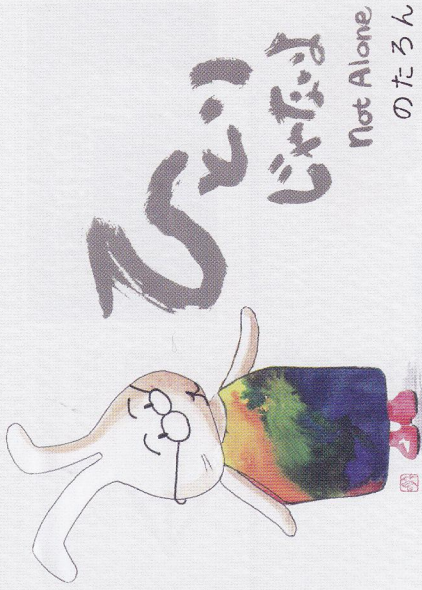 ひとり
じゃないよ
Not Alone
のたろん